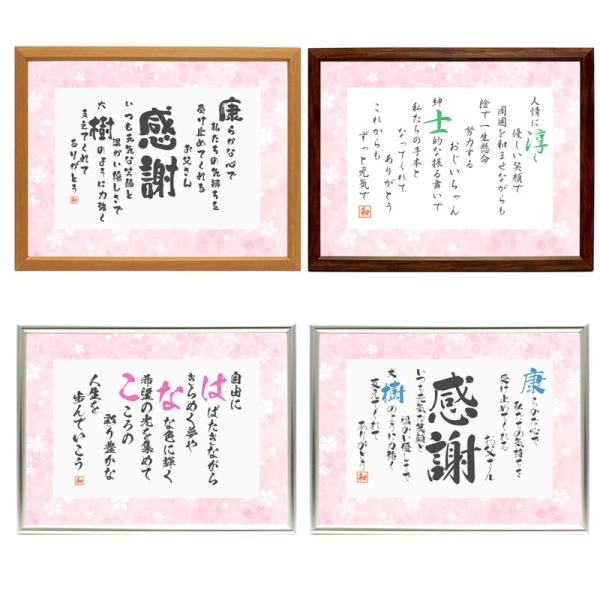 康らかな心で
私たちの気持ちを
受け止めてくれる
お父さん
感謝
いつも元気な笑顔と
温かい優しさで
大樹のように力強く
支えてくれて
ありがとう
和
人情に淳く
優しい笑顔で
周囲を和ませながらも
陰で一生懸命
努力する
おじいちゃん
紳士的な振る舞いで
私たちの手本と
なってくれて
ありがとう
これからも
ずっと元気で
和
自由に
はばたきながら
きらめく夢や
な色に輝く
希望の光を集めて
こころの
彩り豊かな
人生を
歩んでいこう
和
康らかな心で
私たちの気持ちを
受け止めてくれる
お父さん
感謝
いつも元気な笑顔と
温かい優しさで
大樹のように力強く
支えてくれて
ありがとう
和